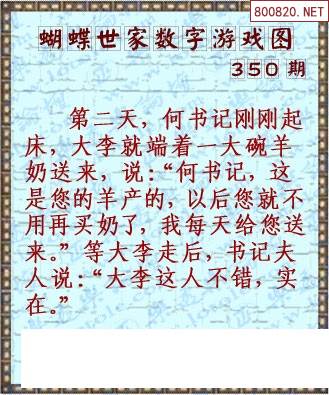 800820.NET
蝴蝶世家数字游戏图
350 期
第二天，何书记刚刚起
床，大李就端着一大碗羊
奶送来，说：“何书记，这
是您的羊产的，以后您就不
用再买奶了，我每天给您送
来。”等大李走后，书记夫
人说：“大李这人不错，实
在。”